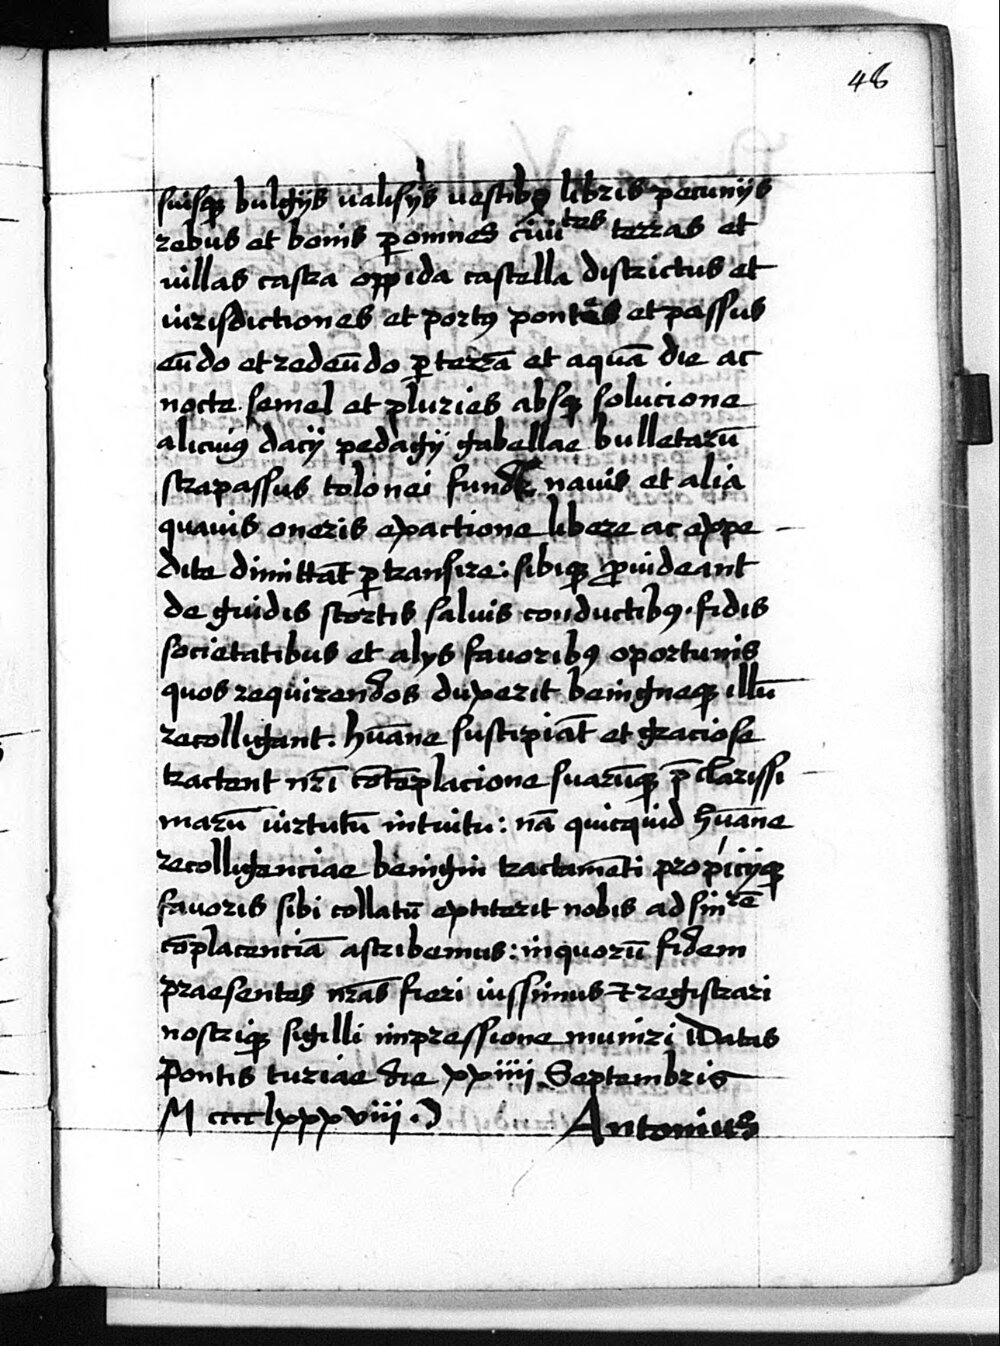 48
suisq̨ bulgijs ualisijs uestibꝯ libris pecunijs
rebus et bonis ꝑ omnes ciui^tes terras et
uillas castra oppida castella districtus et
iurisdictiones et portꝯ pontes et passus
eūdo et redeūdo ꝑ terrā et aquā die ac
nocte semel et pluries absq̨ solucione
alicuiꝯ dacij pedagij gabellae bulletarū
strapassus tolonei nauis et alia
quauis oneris exactione libere ac expe
dite dimittāt ꝑtransire: sibiq̨ ꝓuideant
de guidis scortis saluis conductibꝯ. fidis
societatibus et alys fauoribꝯ oportunis
quos requirendos duxerit benigneq̨ illū
recolligant. hūane suscipiāt et graciose
tractent nrī cōtēplacione suarūq̨ p̄clarissi
marū uirtutū intuitu: nā quicquid hūane
recolligenciae benigni tractamēti propicijq̨
fauoris sibi collatū extiterit nobis ad sin^rē
cōplacenciā ascribemus: inquorū fidem
praesentes nrās fieri iussimus ⁊ registrari
nostriq̨ sigilli impressione muniri Datas
Pontis curiae die xxiiii Septembris
M cccclxxxviii. D Antonius